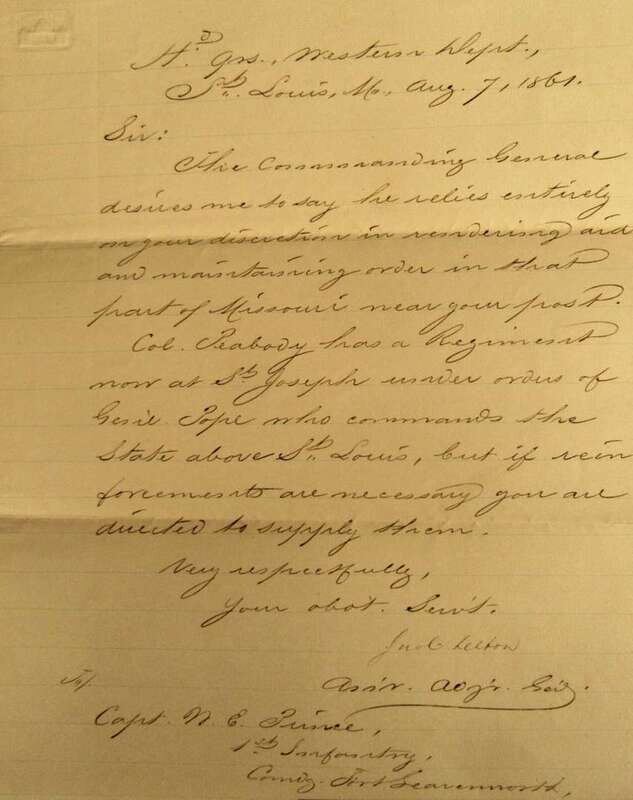 Hd. qrs., Western Dept.,
St. Louis, Mo., Aug. 7, 1861.
Sir:
The Commanding General
desires me to say he relies entirely
on your discretion in rendering aid
and maintaining order in that
part of Missouri near your post.
Col. Peabody has a Regiment
now at St. Joseph under orders of
Genl. Pope who commands the
State above St. Louis, but if rein
forcements are necessary you are
directed to supply them.
Very respectfully,
Your obdt. Servt.
Jno C Kelton
Assr. Adjr. Genl.
To/
Capt. W. E. Prince,
1st Infantry,
Comdg. Fort Leavenworth,